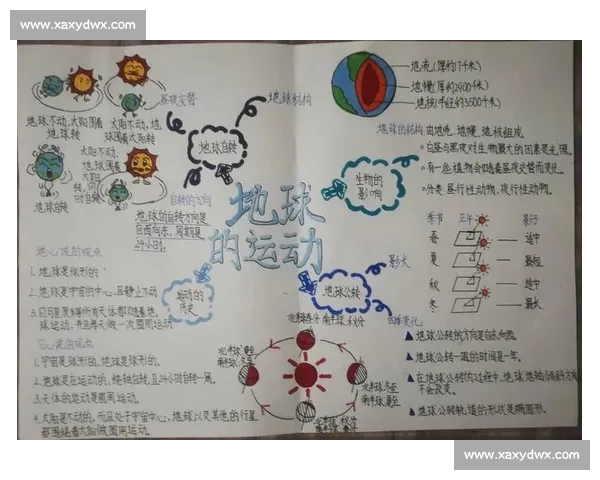 www.xaxydwx.com
地球不动,太阳围着
地球转
太阳不动,地
球围着太阳转
太阳不动,
地球围着
太阳
转,同
时自转
地球自转
昼夜交替
地球结构
地球自转
自转的方向
地球的自转方向是
自西向东,周期是
24小时。
地壳(厚约17千米)
地幔(厚约2900千米)
地核(半径约3500千米)
地球的结构 由地壳、地幔、地核组成
白昼与黑夜对生物最大的因素是光照。
有一些植物会随着昼夜交替而变化。
分类:昼行性动物,夜行性动物。
生物的
影响
地球
的运动
季节 正午 影行
春 适中
夏 最短
秋 适中
冬 最长
地心说的观点
1.地球是球形的
2.地球是宇宙的中心,且静止不动
球运动,并且每天做一次圆周运动
运动的
历史
日心说的观点
1.宇宙是球形的,地球是球形的。
2.地球是在运动的,绕轴自转,且24小时自转一周。
3.天体的运动是圆周运动。
4.太阳是不动的,而且处于宇宙中心,地球以及其他的行星
都围绕着太阳做圆周运动。
影长
地球公转
四季变化
北半球春分 南半球秋分
北半球夏至
南半球冬至
北半球冬至
南半球夏至
北半球秋分
南半球春分
地球公转的方向是自东向西。
地球公转一周的时间是一年。
在地球公转的过程中,地球地轴倾斜方向
不会改变。
地球公转轨道的形状是椭圆形。
www.xaxydwx.com